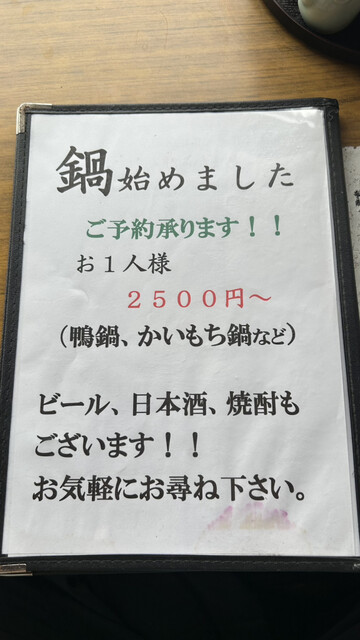 鍋始めました
ご予約承ります！！
お１人様
２５００円～
（鴨鍋、かいもち鍋など）
ビール、日本酒、焼酎も
ございます！！
お気軽にお尋ね下さい。